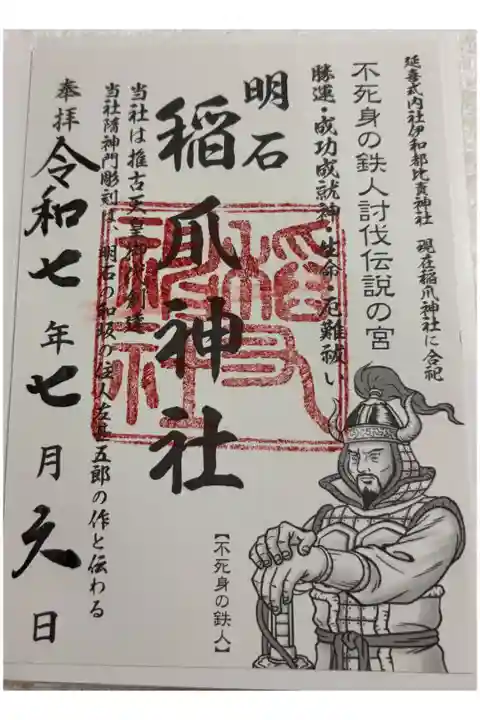 延喜式内社伊和都比売神社 現在稲爪神社に合祀
不死身の鉄人討伐伝説の宮
勝運・成功成就神・生命・厄難祓い
明石
稲爪神社
当社は推古天皇御代創建
当社隋神門彫刻は、明石の和坂の住人左甚五郎の作と伝わる
奉拝
令和七年七月六日
【不死身の鉄人】